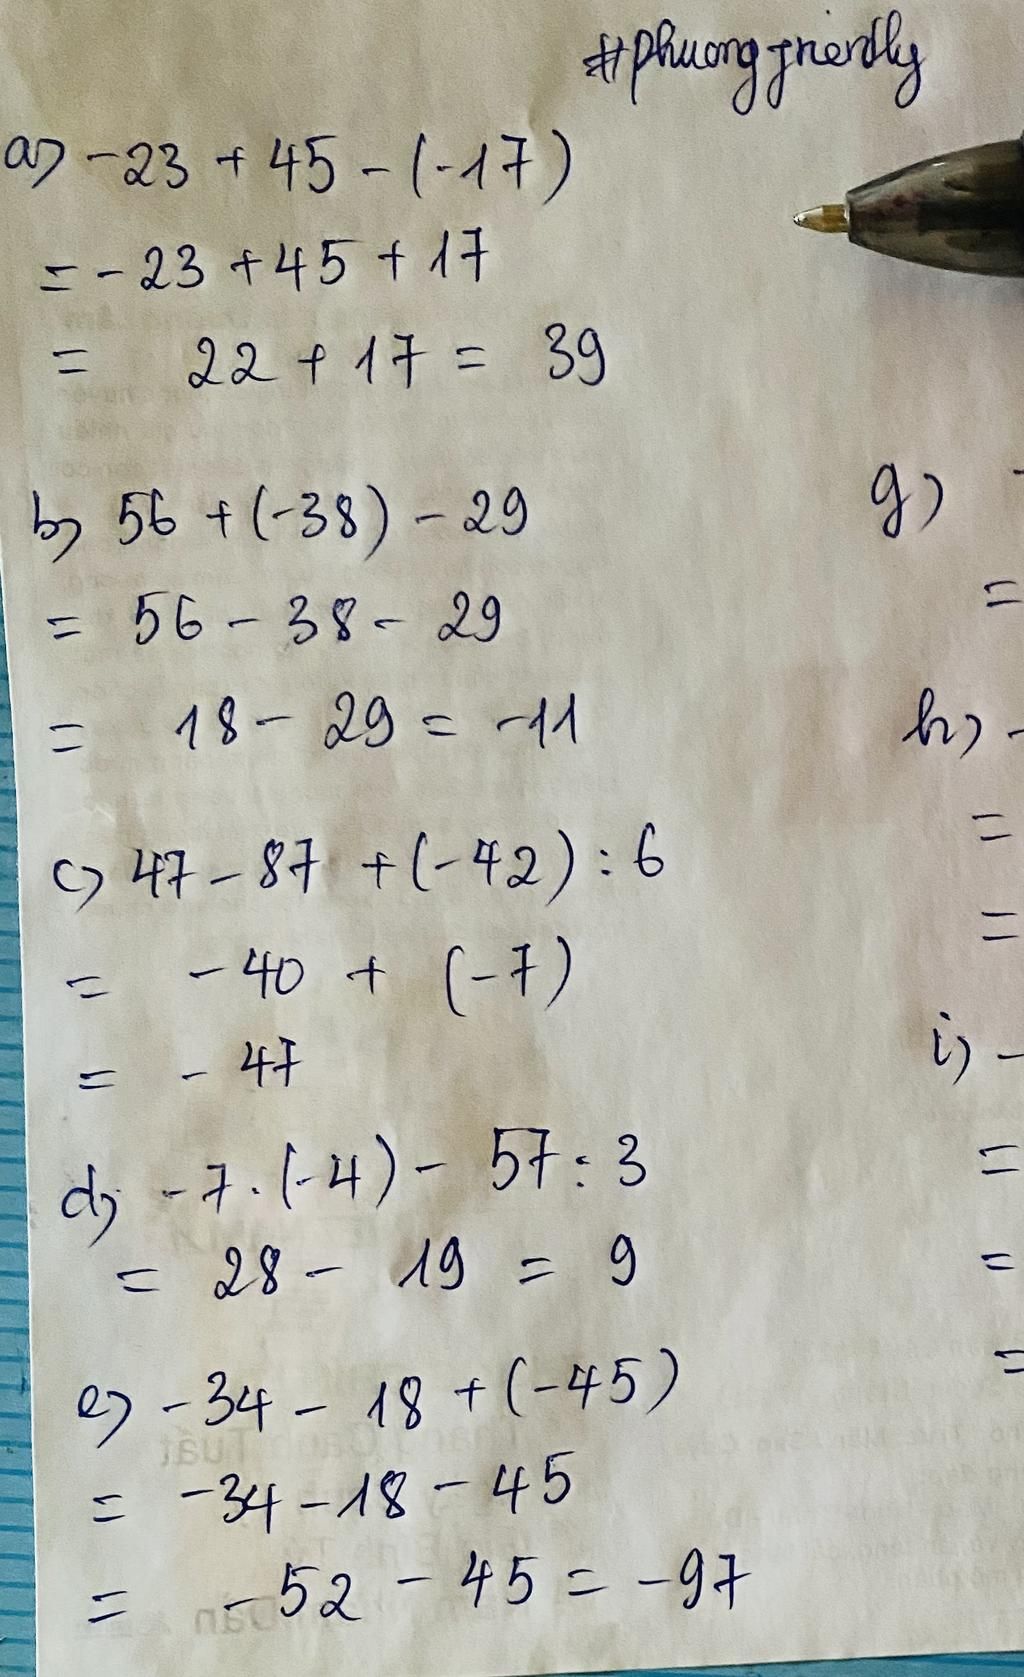 #phuongfriendly
a) -23 + 45 - (-17)
= -23 + 45 + 17
= 22 + 17 = 39
b) 56 + (-38) - 29
= 56 - 38 - 29
= 18 - 29 = -11
c) 47 - 87 + (-42) : 6
= -40 + (-7)
= - 47
d) -7 . (-4) - 57 : 3
= 28 - 19 = 9
e) -34 - 18 + (-45)
= -34 - 18 - 45
= -52 - 45 = -97
g) -
=
h) -
=
=
i) -
=
=
=